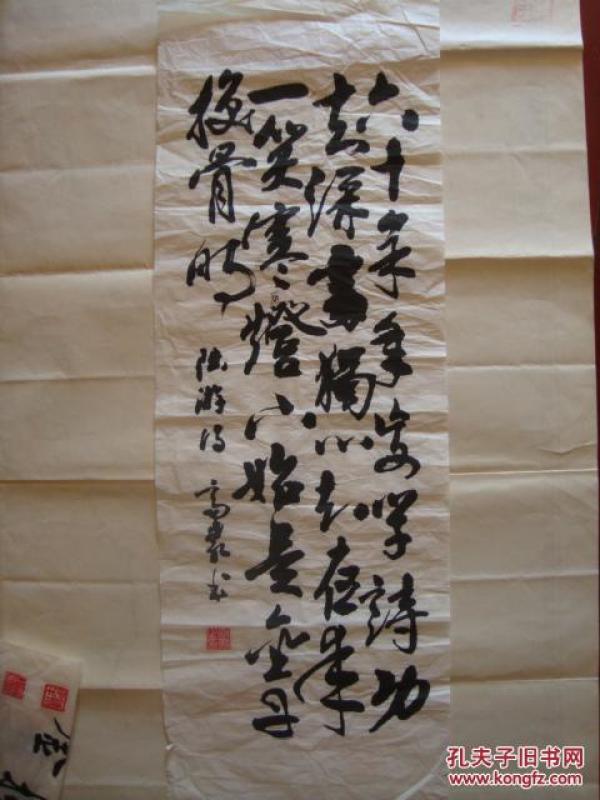 六十余年妄学詩功
夫深處獨心知夜来
一笑寒燈下始是金丹
換骨时
陆游诗
高 书
孔夫子旧书网
www.kongfz.com